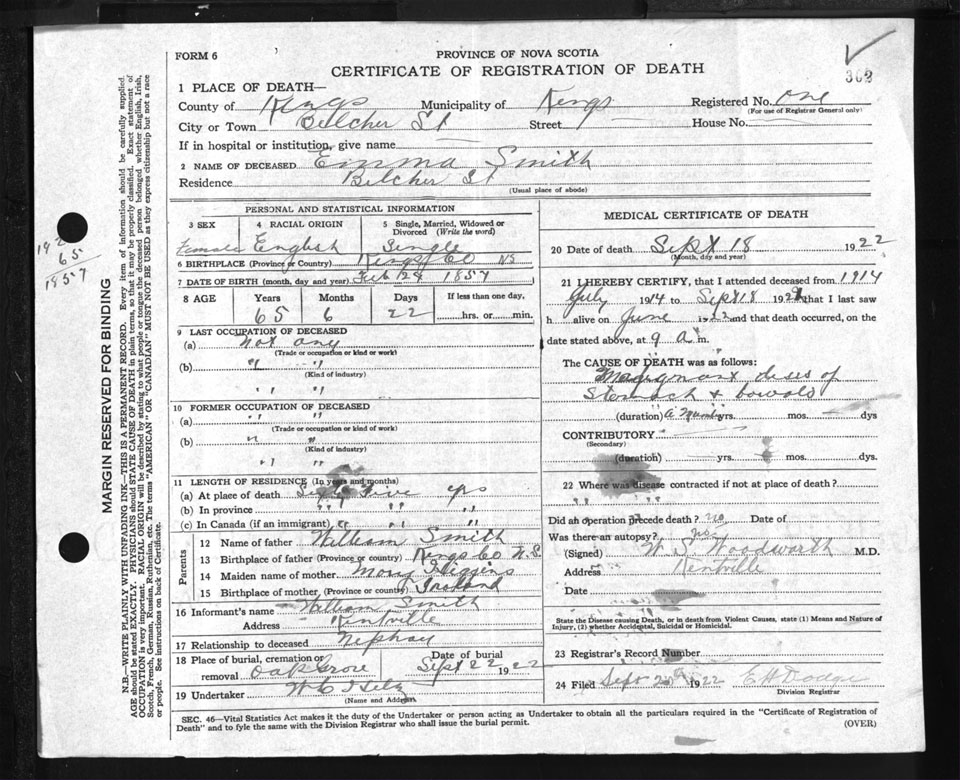 FORM 6
PROVINCE OF NOVA SCOTIA
CERTIFICATE OF REGISTRATION OF DEATH
362
1 PLACE OF DEATH—
County of Kings Municipality of Kings Registered No. One
(For use of Registrar General only)
City or Town Belcher St Street House No.
If in hospital or institution, give name
2 NAME OF DECEASED Emma Smith
Residence Belcher St
(Usual place of abode)
PERSONAL AND STATISTICAL INFORMATION
3 SEX 4 RACIAL ORIGIN 5 Single, Married, Widowed or Divorced (Write the word)
Female English Single
6 BIRTHPLACE (Province or Country) Kings Co NS
7 DATE OF BIRTH (month, day and year) Feb 24 1857
8 AGE Years Months Days If less than one day,
65 6 22 hrs. or min.
9 LAST OCCUPATION OF DECEASED
(a) Not any
(Trade or occupation or kind or work)
(b) " "
(Kind of industry)
" "
10 FORMER OCCUPATION OF DECEASED
(a) " "
(Trade or occupation or kind of work)
(b) " "
(Kind of industry)
" "
11 LENGTH OF RESIDENCE (In years and months)
(a) At place of death Sixty Five yrs
(b) In province " " "
(c) In Canada (if an immigrant) " " "
Parents
12 Name of father William Smith
13 Birthplace of father (Province or country) Kings Co N.S.
14 Maiden name of mother Mary Higgins
15 Birthplace of mother (Province or country) Ireland
16 Informant's name William Smith
Address Kentville
17 Relationship to deceased Nephay
18 Place of burial, cremation or removal Oak Grove Date of burial Sept 22 1922
19 Undertaker W C
(Name and Address)
MEDICAL CERTIFICATE OF DEATH
20 Date of death Sept 18 1922
(Month, day and year)
21 I HEREBY CERTIFY, that I attended deceased from 1914
July 1914 to Sept 18 1922, that I last saw
h alive on June 1922 and that death occurred, on
date stated above, at 9 a m.
The CAUSE OF DEATH was as follows:
Malignant dises of
Stomach & bowals
(duration) yrs. mos. dys
CONTRIBUTORY
(Secondary)
(duration) yrs. mos. dys.
22 Where was disease contracted if not at place of death?
" " "
Did an operation precede death? no Date of
Was there an autopsy? no
(Signed) W. S. Woodworth M.D.
Address Kentville
Date
State the Disease causing Death, or in death from Violent Causes, state (1) Means and Nature of
Injury, (2) whether Accidental, Suicidal or Homicidal.
23 Registrar's Record Number
24 Filed Sept 20 1922 E H Dodge
Division Registrar
SEC. 46—Vital Statistics Act makes it the duty of the Undertaker or person acting as Undertaker to obtain all the particulars required in the "Certificate of Registration of
Death" and to fyle the same with the Division Registrar who shall issue the burial permit.
(OVER)
MARGIN RESERVED FOR BINDING
N.B.—WRITE PLAINLY WITH UNFADING INK—THIS IS A PERMANENT RECORD. Every item of information should be carefully supplied.
AGE should be stated EXACTLY. PHYSICIANS should STATE CAUSE OF DEATH in plain terms, so that it may be properly classified. Exact statement of
OCCUPATION is very important. RACIAL ORIGIN will be described by stating to what people or tongue the deceased person belonged whether English, Irish,
Scotch, French, German, Russian, Ruthenian, etc. The terms "AMERICAN" OR "CANADIAN" MUST NOT BE USED as they express citizenship but not a race
or people. See instructions on back of Certificate.
65
1857